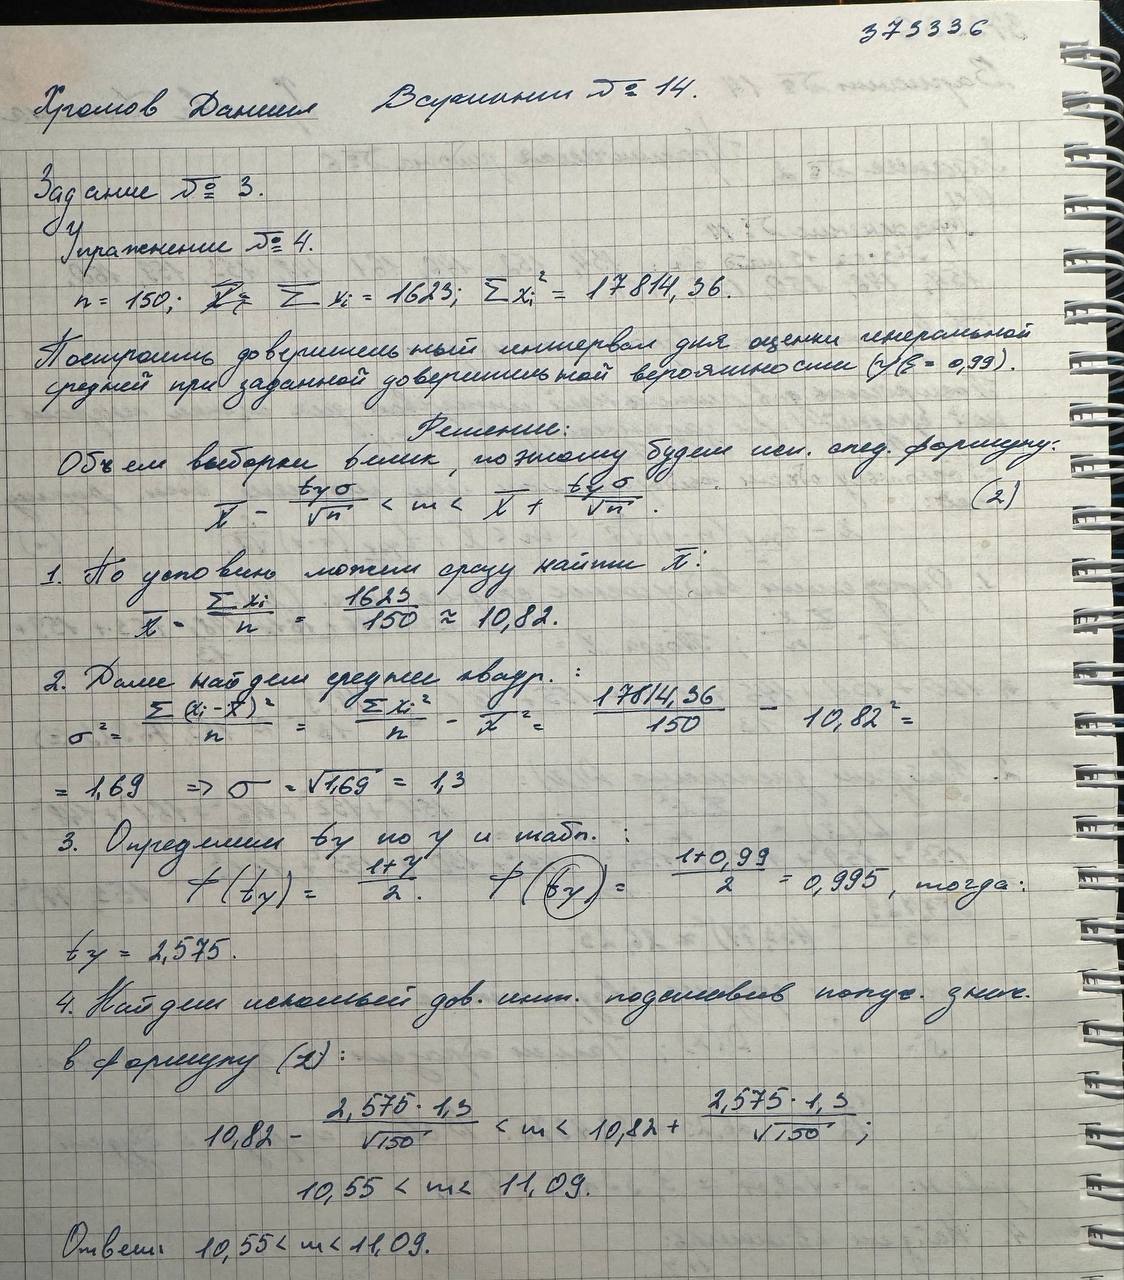 373336
Хромов Даниил Вариант № 14.
Задание № 3.
Упражнение № 4.
n = 150; Σ xᵢ = 1623; Σ xᵢ² = 17814,36.
Построить доверительный интервал для оценки генеральной
средней при заданной доверительной вероятности (γ = 0,99).
Решение:
Объем выборки велик, поэтому будем исп. след. формулу:
x̄ - tγσ/√n < m < x̄ + tγσ/√n. (2)
1. По условию можем сразу найти x̄:
x̄ = Σ xᵢ/n = 1623/150 ≈ 10,82.
2. Далее найдем средне квадр. :
σ² = Σ (xᵢ - x̄)²/n = Σ xᵢ²/n - x̄² = 17814,36/150 - 10,82² =
= 1,69 => σ = √1,69 = 1,3
3. Определим tγ по γ и табл. :
Ф(tγ) = 1+γ/2. Ф(tγ) = 1+0,99/2 = 0,995, тогда:
tγ = 2,575.
4. Найдем искомый дов. инт. подставив получ. знач.
в формулу (2):
10,82 - 2,575·1,3/√150 < m < 10,82 + 2,575·1,3/√150;
10,55 < m < 11,09.
Ответ: 10,55 < m < 11,09.